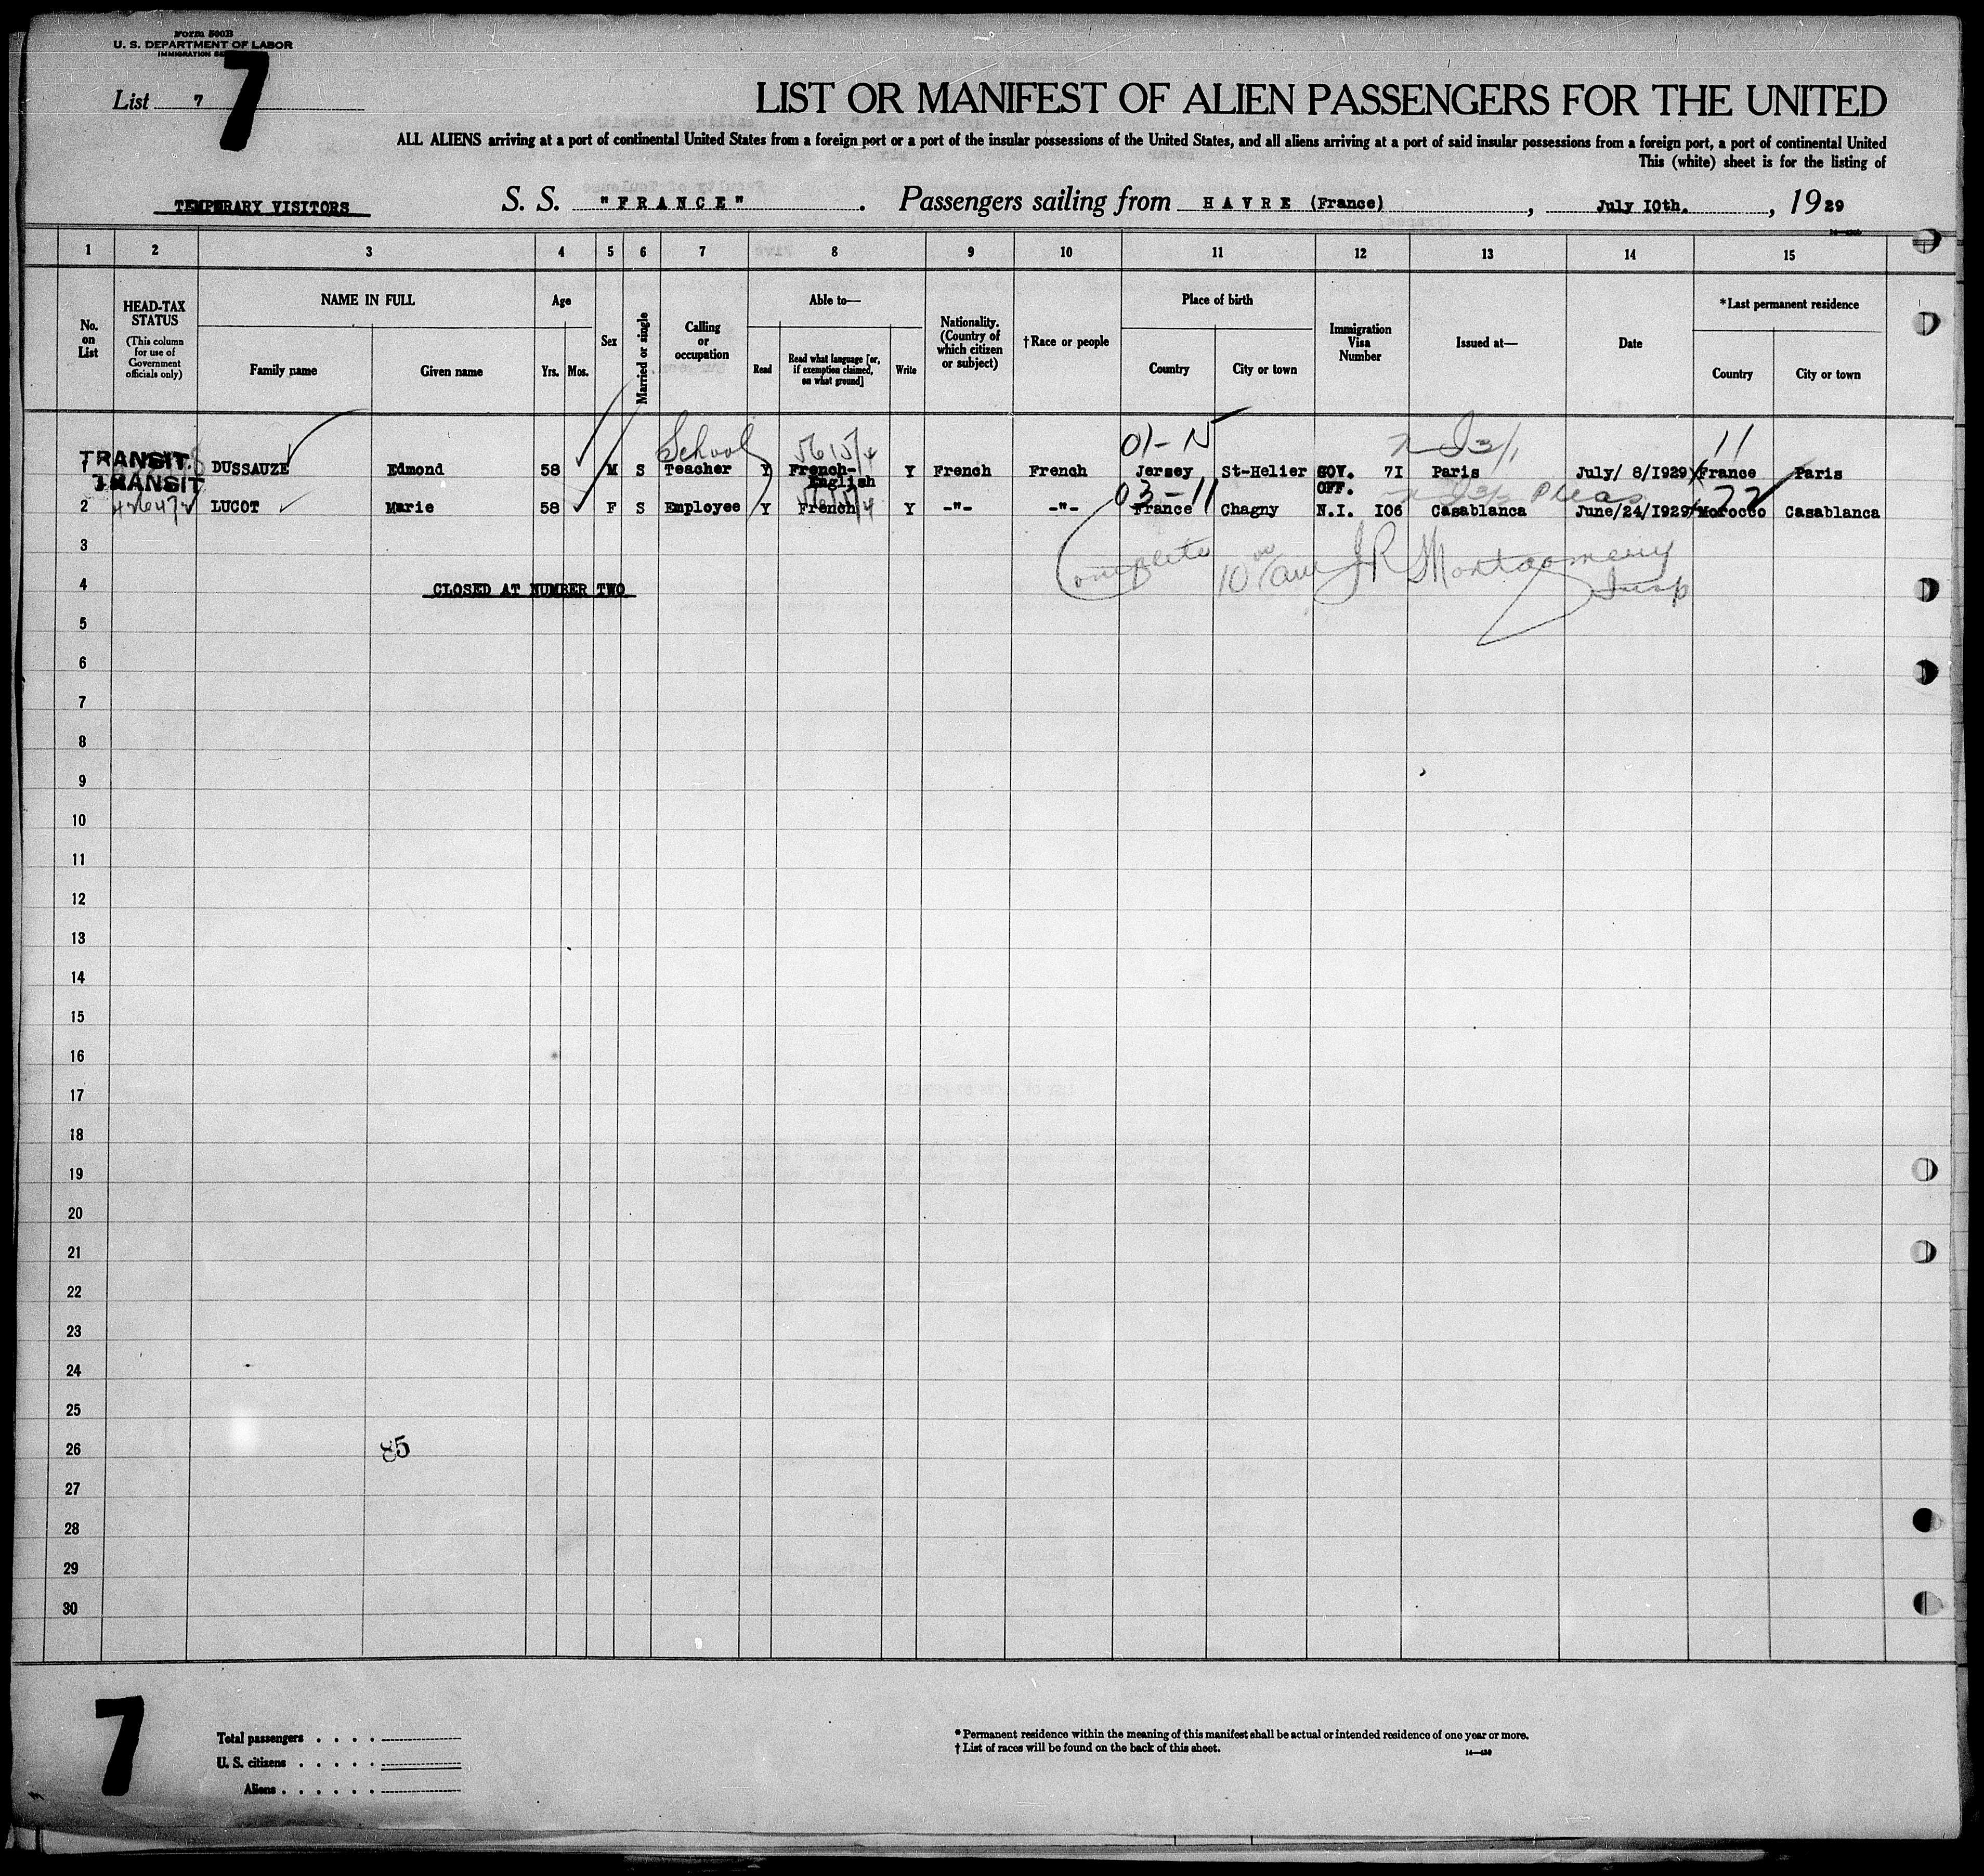 Form 500B
U. S. DEPARTMENT OF LABOR
IMMIGRATION
List 7
7
LIST OR MANIFEST OF ALIEN PASSENGERS FOR THE UNITED
ALL ALIENS arriving at a port of continental United States from a foreign port or a port of the insular possessions of the United States, and all aliens arriving at a port of said insular possessions from a foreign port, a port of continental United
This (white) sheet is for the listing of
TEMPORARY VISITORS S. S. "FRANCE". Passengers sailing from HAVRE (France), July 10th., 1929
1 2 3 4 5 6 7 8 9 10 11 12 13 14 15
No. on List
HEAD-TAX STATUS (This column for use of Government officials only)
NAME IN FULL
Family name Given name
Age
Yrs. Mos.
Sex
Married or single
Calling or occupation
Able to—
Read
Read what language [or, if exemption claimed, on what ground]
Write
Nationality. (Country of which citizen or subject)
†Race or people
Place of birth
Country City or town
Immigration Visa Number
Issued at—
Date
*Last permanent residence
Country City or town
School 01-N 11
TRANSIT.
1 DUSSAUZE Edmond 58 M S Teacher Y French-English Y French French Jersey St-Helier GOV. OFF. 71 Paris July/ 8/1929 France Paris
TRANSIT
03-11 77
2 LUCOT Marie 58 F S Employee Y French Y -"- -"- France Chagny N.I. 106 Casablanca June/24/1929 Morocco Casablanca
3
Complete 10 00/am J R Montgomery
Insp
4 CLOSED AT NUMBER TWO
5
6
7
8
9
10
11
12
13
14
15
16
17
18
19
20
21
22
23
24
25
26 85
27
28
29
30
7
Total passengers . . . .
U. S. citizens . . . . .
Aliens . . . . . .
* Permanent residence within the meaning of this manifest shall be actual or intended residence of one year or more.
† List of races will be found on the back of this sheet.